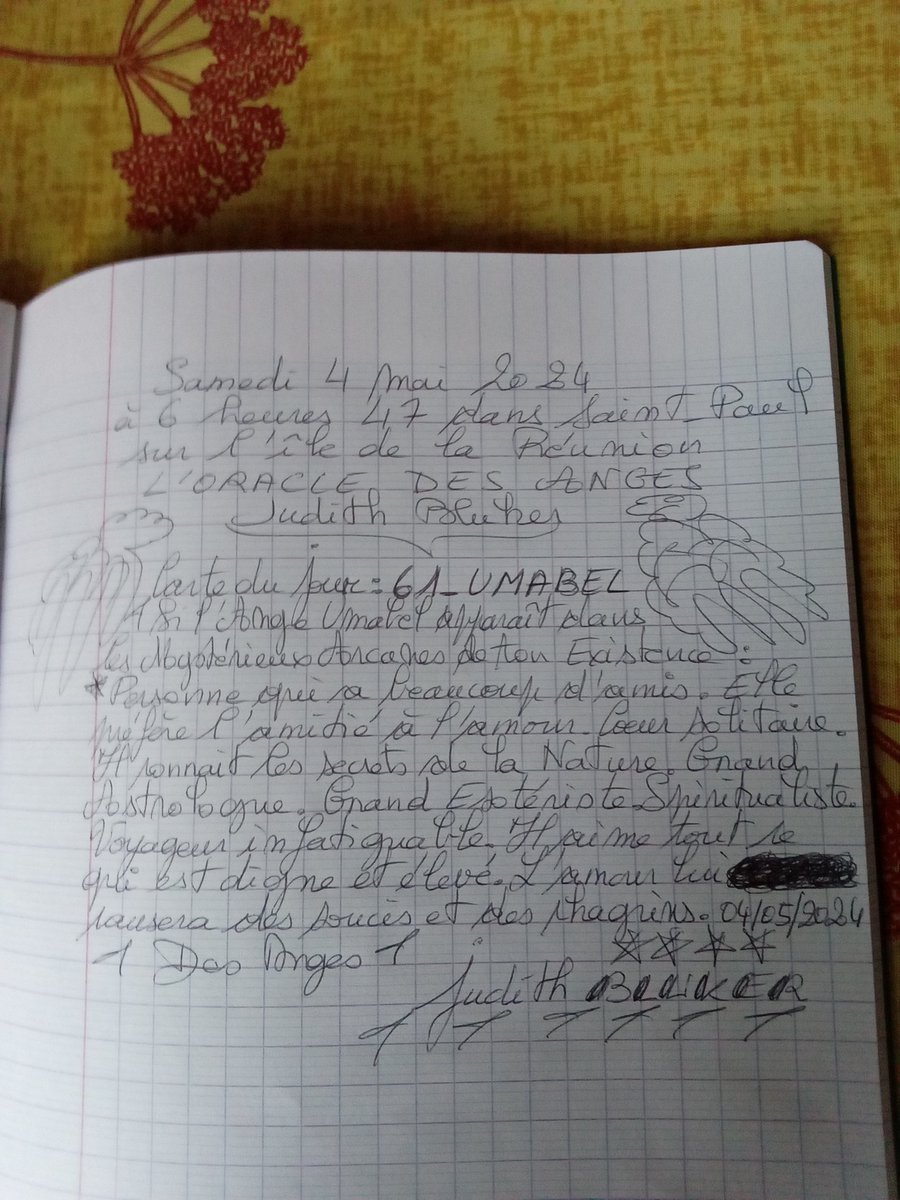 Samedi 4 Mai 2024
à 6 heures 47 dans Saint-Paul
sur l'île de la Réunion
L'ORACLE DES ANGES
Judith
Carte du jour : 61_UMABEL
Si l'Ange Umabel apparaît dans
les Mystérieux Arcanes de ton Existence :
*Personne qui a beaucoup d'amis. Elle
préfère l'amitié à l'amour. Coeur solitaire.
Il connaît les secrets de la Nature. Grand
Astrologue. Grand Esotériste Spiritualiste.
Voyageur infatiguable. Il aime tout ce
qui est digne et élevé. L'amour lui
causera des soucis et des chagrins. 04/05/2024
Des Anges
Judith